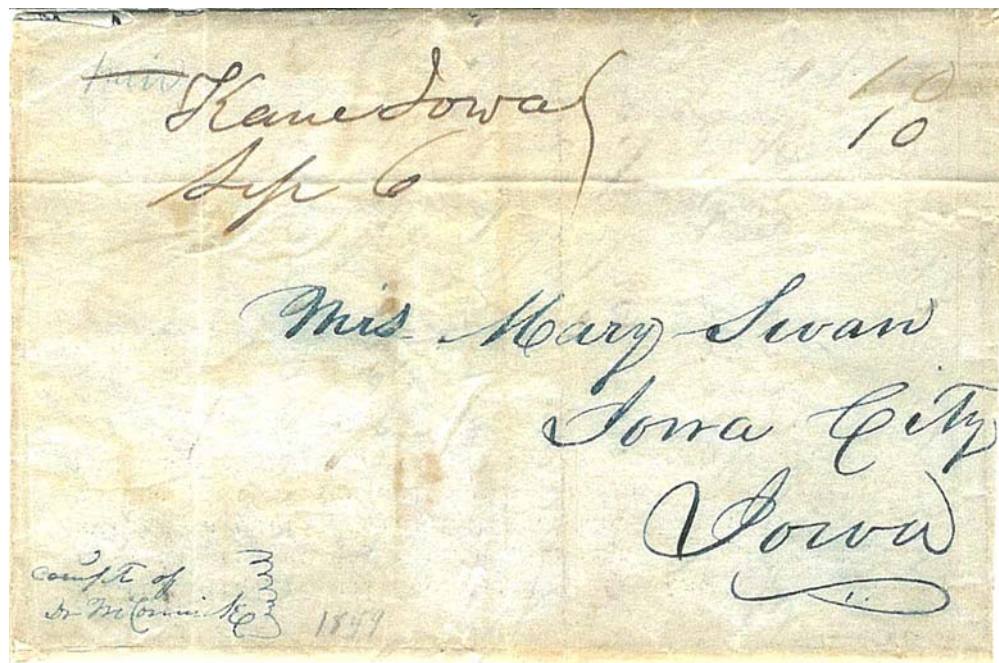 Kane Iowa
Sep 6
10
10
Mrs Mary Swan
Iowa City
Iowa
compt of
Dr McCormick
1849